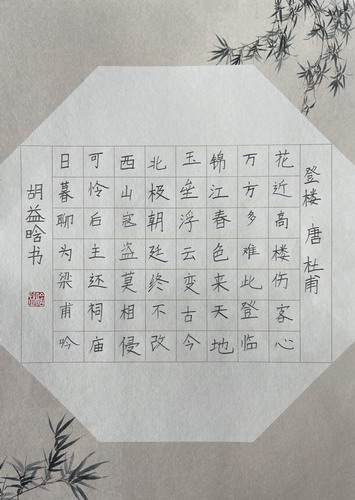 登楼 唐 杜甫
花近高楼伤客心
万方多难此登临
锦江春色来天地
玉垒浮云变古今
北极朝廷终不改
西山寇盗莫相侵
可怜后主还祠庙
日暮聊为梁甫吟
胡益晗书